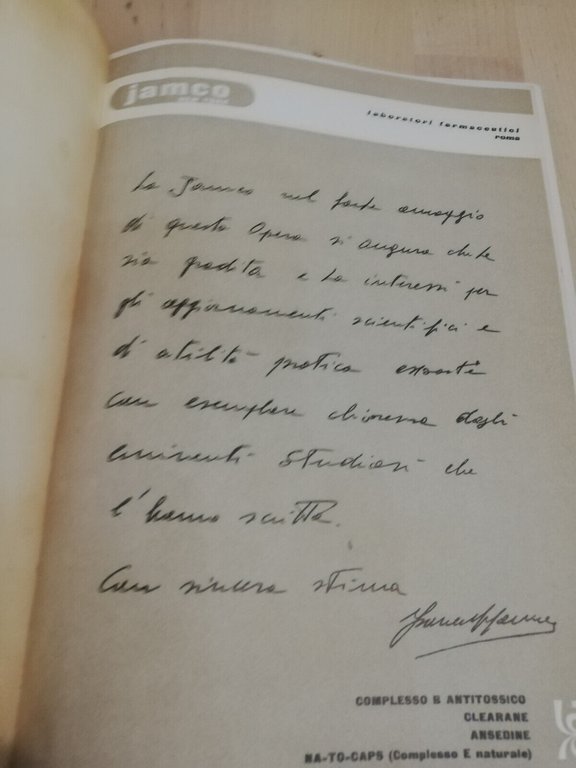 jamco
laboratori farmaceutici
roma
La Jamco nel farle omaggio
di questa Opera si augura che Le
sia gradita e La interessi per
gli aggiornamenti scientifici e
di utilità pratica esposti
con esemplare chiarezza dagli
eminenti Studiosi che
l'hanno scritta.
Con sincera stima
COMPLESSO B ANTITOSSICO
CLEARANE
ANSEDINE
NA-TO-CAPS (Complesso E naturale)